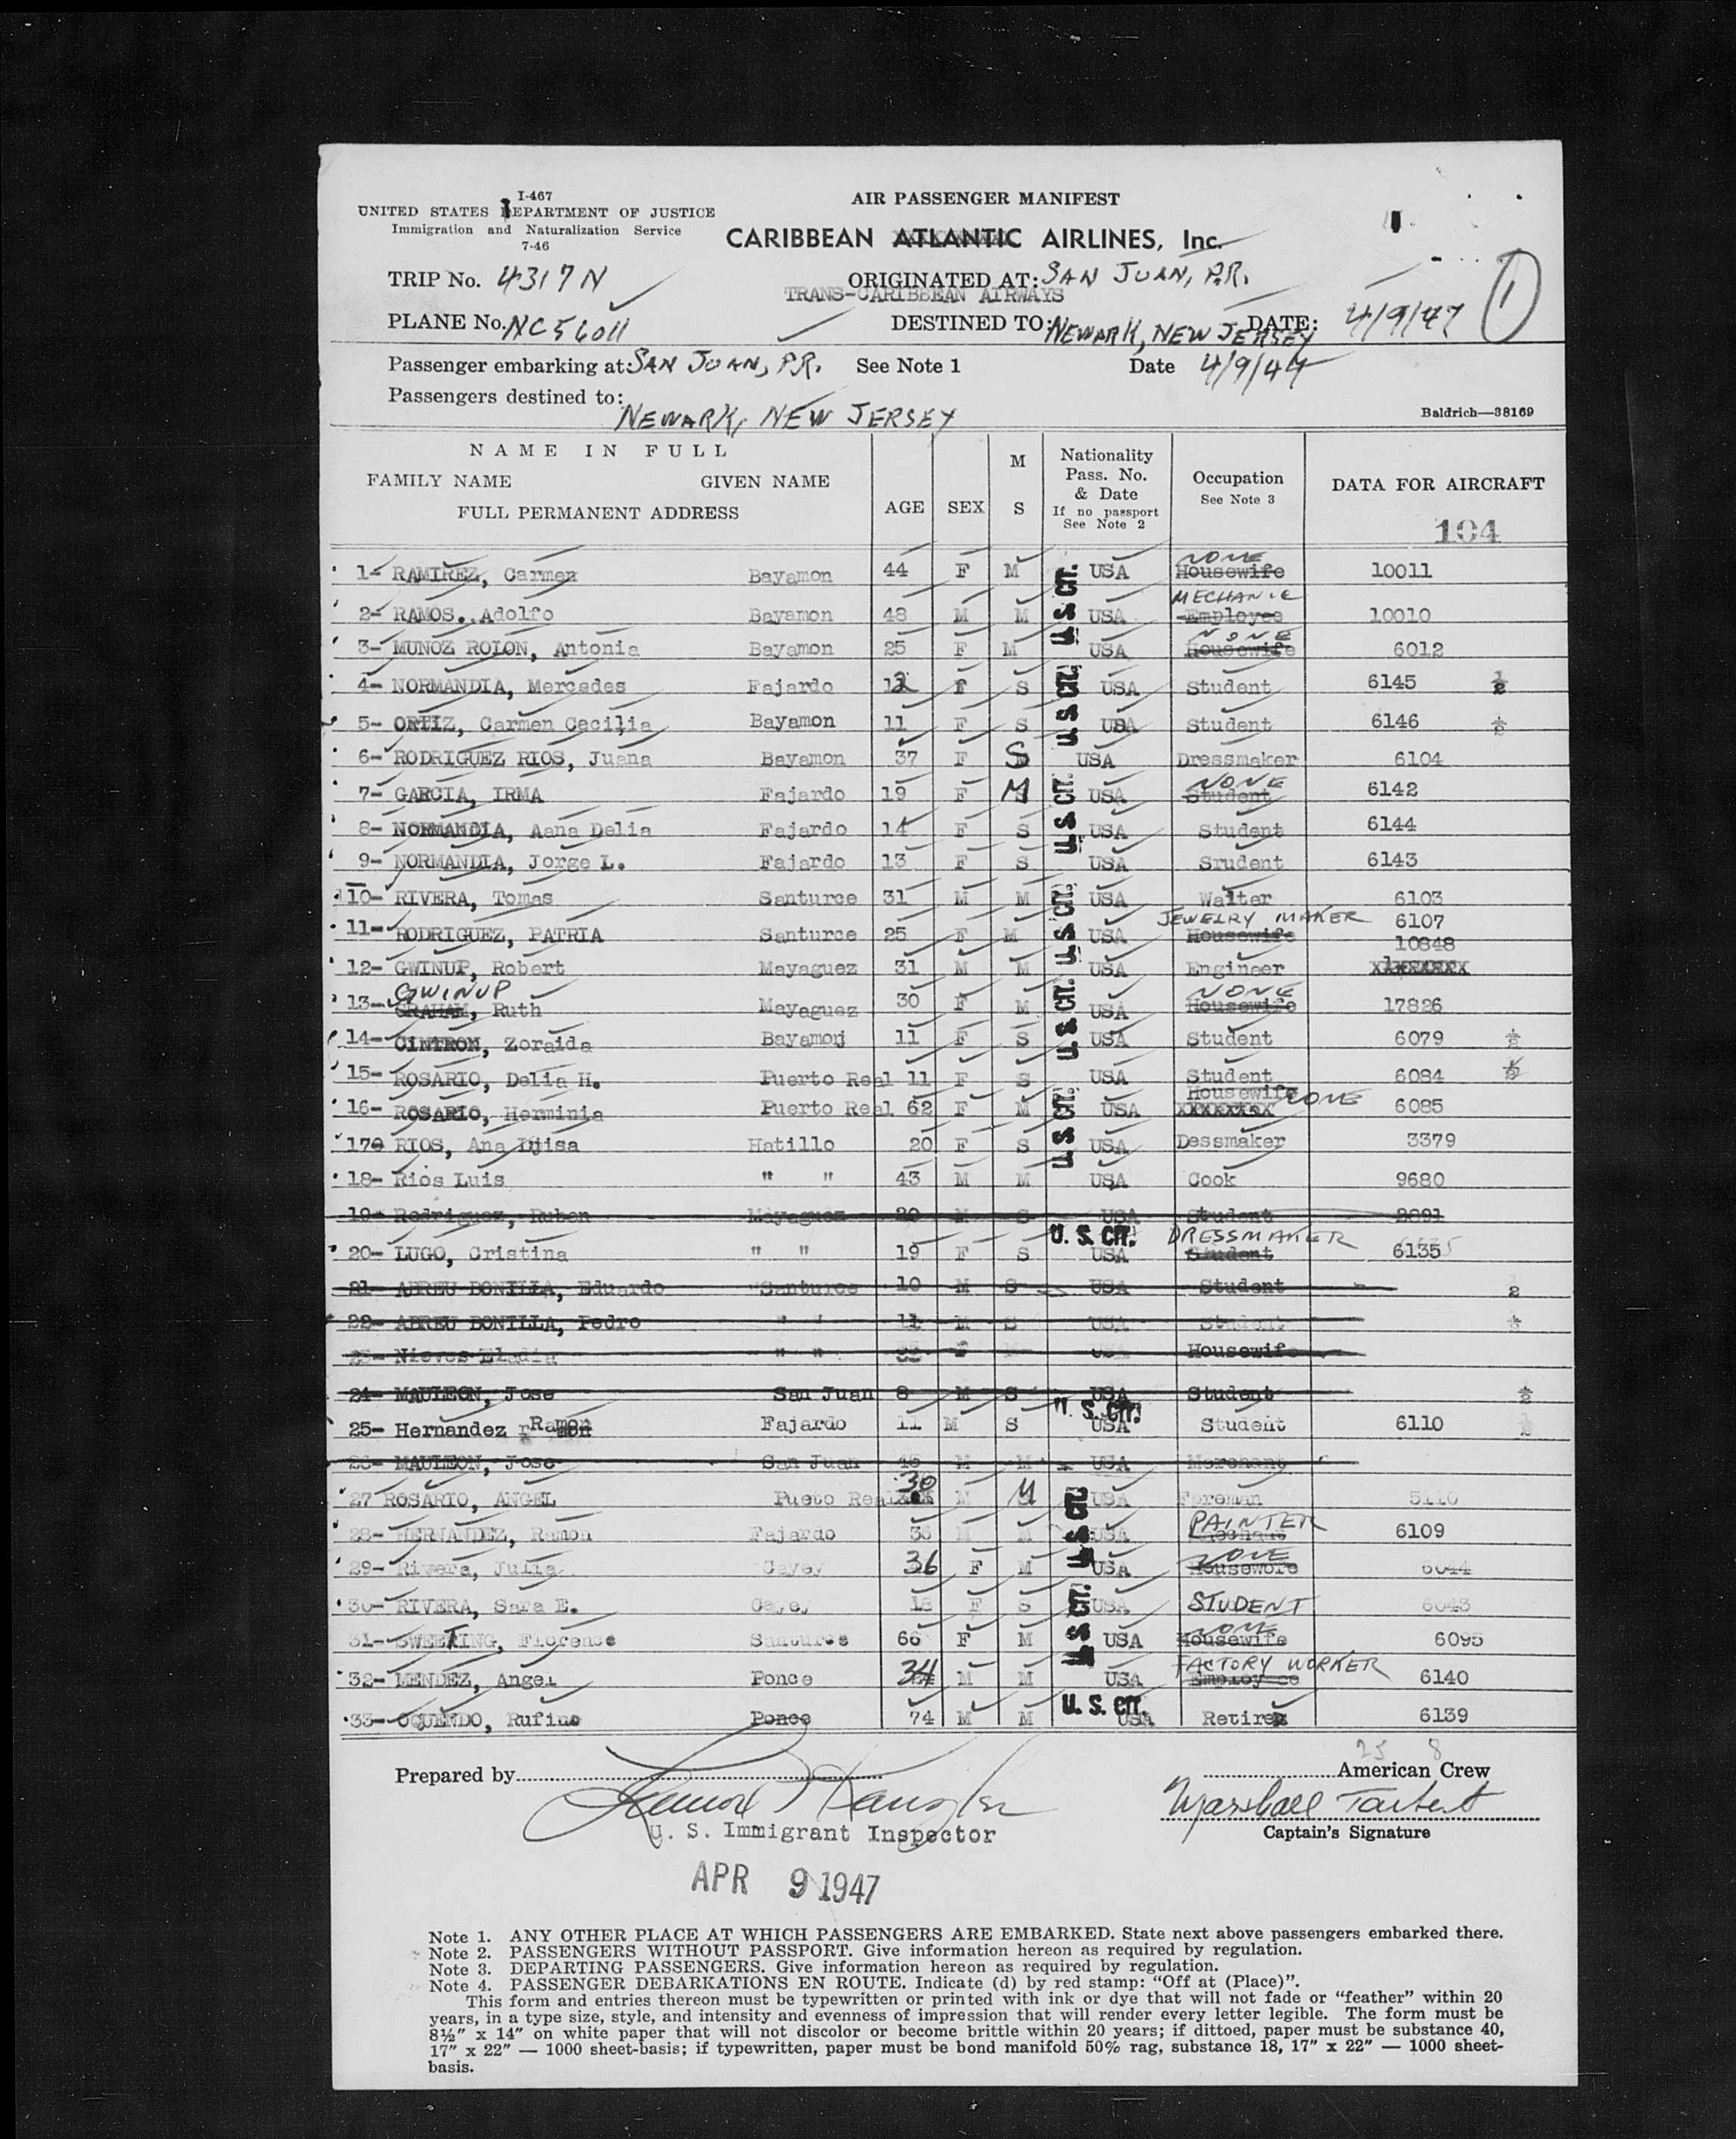 I-467
UNITED STATES DEPARTMENT OF JUSTICE
Immigration and Naturalization Service
7-46
AIR PASSENGER MANIFEST
CARIBBEAN ATLANTIC AIRLINES, Inc.
TRIP No. 4317N ORIGINATED AT: SAN JUAN, P.R.
TRANS-CARIBBEAN AIRWAYS
PLANE No. NC56011 DESTINED TO: NEWARK, NEW JERSEY DATE: 4/9/47 1
Passenger embarking at SAN JUAN, P.R. See Note 1 Date 4/9/47
Passengers destined to: NEWARK, NEW JERSEY
Baldrich—38169
NAME IN FULL
FAMILY NAME GIVEN NAME
FULL PERMANENT ADDRESS
AGE SEX M S
Nationality Pass. No. & Date If no passport See Note 2
Occupation See Note 3
DATA FOR AIRCRAFT
104
1- RAMIREZ, Carmen Bayamon 44 F M USA Housewife NONE 10011
2- RAMOS., Adolfo Bayamon 48 M M USA Employee MECHANIC 10010
3- MUNOZ ROLON, Antonia Bayamon 25 F M USA Housewife NONE 6012
4- NORMANDIA, Mercedes Fajardo 12 F S USA Student 6145 1/2
5- ORTIZ, Carmen Cecilia Bayamon 11 F S USA Student 6146 1/2
6- RODRIGUEZ RIOS, Juana Bayamon 37 F S USA Dressmaker 6104
7- GARCIA, IRMA Fajardo 19 F M USA Student NONE 6142
8- NORMANDIA, Aana Delia Fajardo 14 F S USA Student 6144
9- NORMANDIA, Jorge L. Fajardo 13 F S USA Srudent 6143
10- RIVERA, Tomas Santurce 31 M M USA Waiter 6103
11- RODRIGUEZ, PATRIA Santurce 25 F M USA Housewife JEWELRY MAKER 6107
12- GWINUP, Robert Mayaguez 31 M M USA Engineer 10848
13- GRAHAM, GWINUP Ruth Mayaguez 30 F M USA Housewife NONE 17826
14- CINTRON, Zoraida Bayamonj 11 F S USA Student 6079 1/2
15- ROSARIO, Delia H. Puerto Real 11 F S USA Student 6084 1/2
16- ROSARIO, Herminia Puerto Real 62 F M USA Housewife NONE 6085
17- RIOS, Ana Luisa Hatillo 20 F S USA Dessmaker 3379
18- Rios Luis " " 43 M M USA Cook 9680
19- Rodriguez, Ruben Mayaguez 20 M S USA Student
20- LUGO, Cristina " " 19 F S USA Student DRESSMAKER 6135
21- ABREU BONILLA, Eduardo Santurce 10 M S USA Student 1/2
22- ABREU BONILLA, Pedro " " 11 M S USA Student 1/2
23- Nieves Eladia " " USA Housewife
24- MAULEON, Jose San Juan 8 M S USA Student 1/2
25- Hernandez Ramon Fajardo 11 M S USA Student 6110 1/2
26- MAULEON, Jose San Juan M M USA Merchant
27 ROSARIO, ANGEL Pueto Real 30 M M USA Foreman
28- HERNANDEZ, Ramon Fajardo M M USA PAINTER 6109
29- Rivera, Julia Cayey 36 F M USA Housewore NONE 6044
30- RIVERA, Sara E. Cayey F S USA STUDENT 6043
31- SWEETING, Florence Santurce 66 F M USA Housewife NONE 6095
32- MENDEZ, Angel Ponce 34 M M USA Employee FACTORY WORKER 6140
33- OQUENDO, Rufino Ponce 74 M M USA Retired 6139
U. S. CIT.
U. S. CIT.
U. S. CIT.
U. S. CIT.
U. S. CIT.
U. S. CIT.
U. S. CIT.
U. S. CIT.
U. S. CIT.
U. S. CIT.
U. S. CIT.
U. S. CIT.
25 8
Prepared by American Crew
Marshall Tarbert
U. S. Immigrant Inspector Captain's Signature
APR 9 1947
Note 1. ANY OTHER PLACE AT WHICH PASSENGERS ARE EMBARKED. State next above passengers embarked there.
Note 2. PASSENGERS WITHOUT PASSPORT. Give information hereon as required by regulation.
Note 3. DEPARTING PASSENGERS. Give information hereon as required by regulation.
Note 4. PASSENGER DEBARKATIONS EN ROUTE. Indicate (d) by red stamp: "Off at (Place)".
This form and entries thereon must be typewritten or printed with ink or dye that will not fade or "feather" within 20
years, in a type size, style, and intensity and evenness of impression that will render every letter legible. The form must be
8½" x 14" on white paper that will not discolor or become brittle within 20 years; if dittoed, paper must be substance 40,
17" x 22" — 1000 sheet-basis; if typewritten, paper must be bond manifold 50% rag, substance 18, 17" x 22" — 1000 sheet-
basis.